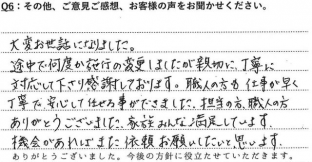 Q6：その他、ご意見ご感想、お客様の声をお聞かせください。
大変お世話になりました。
途中で何度か施行の変更しましたが親切に、丁寧に
対応して下さり感謝しております。職人の方も仕事が早く
丁寧で安心して任せる事ができました。担当の方、職人の方
ありがとうございました。家族みんな満足しています。
機会があればまた依頼お願いしたいと思います。
ありがとうございました。今後の方針に役立たせていただきます。